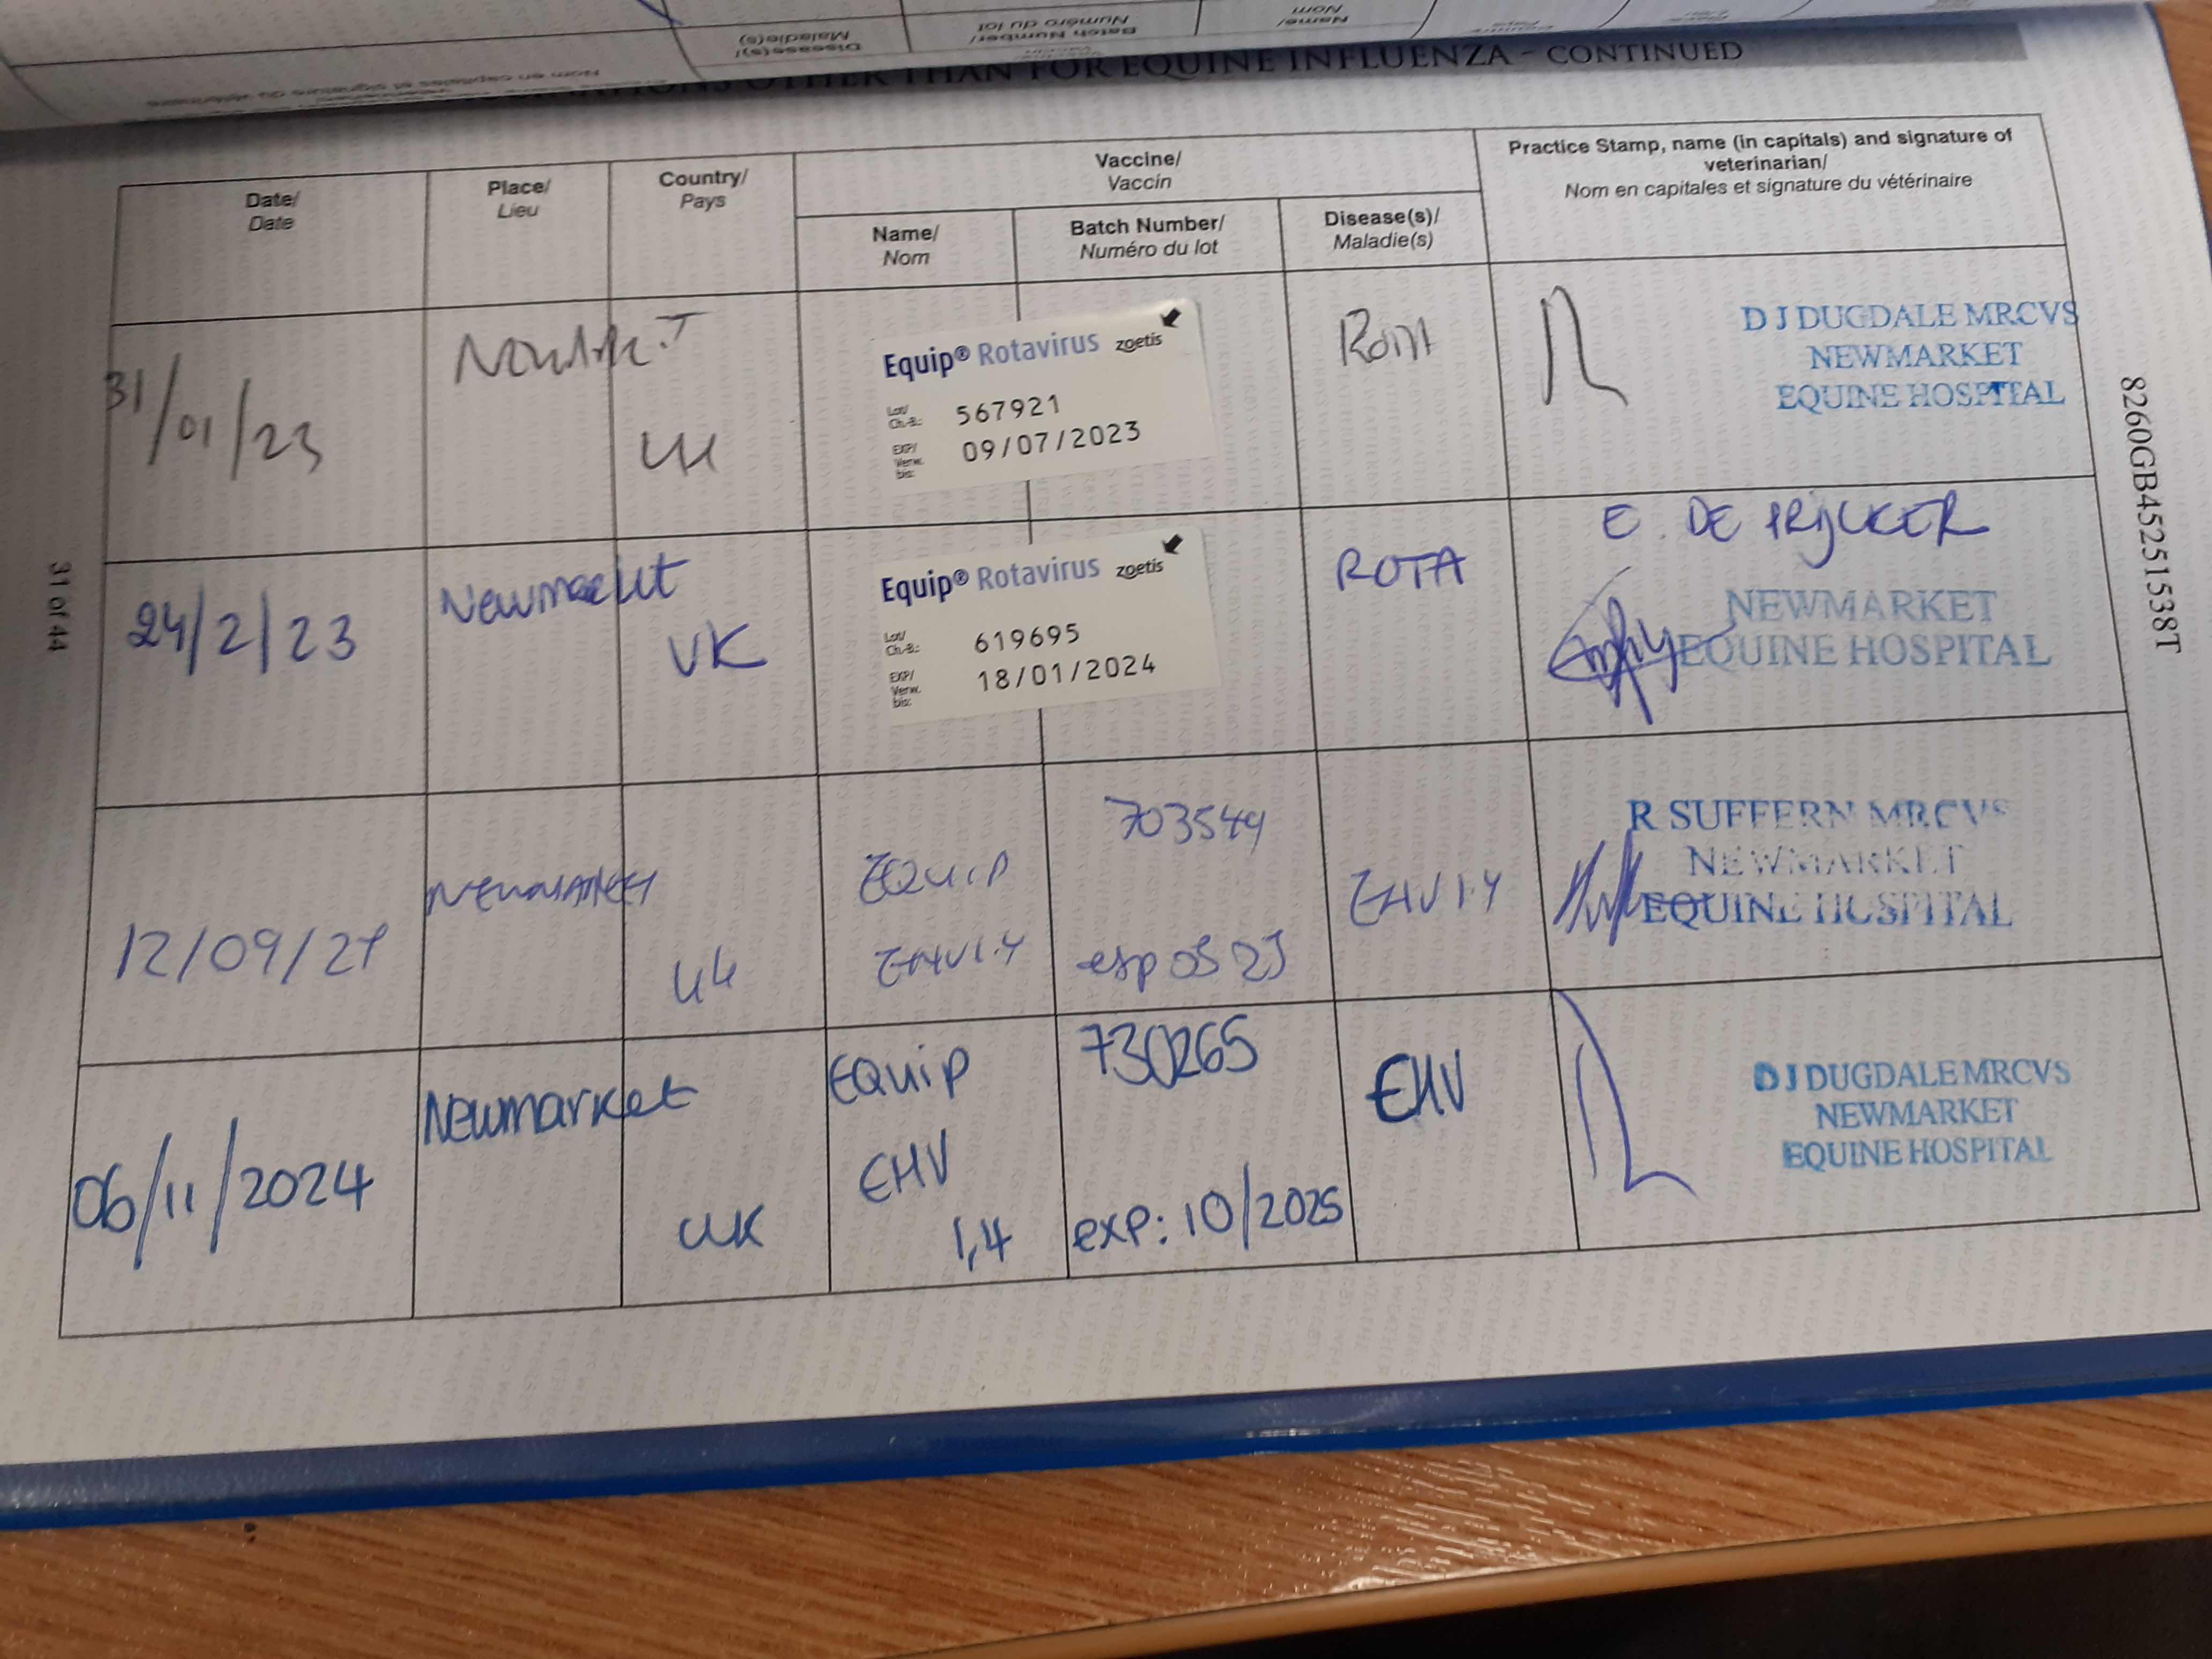 Disease(s)/
Maladie(s)
Batch Number/
Numéro du lot
Name/
Nom
Nom en capitales et signature du vétérinaire
OTHER THAN FOR EQUINE INFLUENZA - CONTINUED
Date/
Date
Place/
Lieu
Country/
Pays
Vaccine/
Vaccin
Name/
Nom
Batch Number/
Numéro du lot
Disease(s)/
Maladie(s)
Practice Stamp, name (in capitals) and signature of
veterinarian/
Nom en capitales et signature du vétérinaire
31/01/23
UK
Equip® Rotavirus zoetis
Lot/
Ch.-B.: 567921
EXP/
Verw.
bis: 09/07/2023
Rota
D J DUGDALE MRCVS
NEWMARKET
EQUINE HOSPITAL
24/2/23
Newmarket
UK
Equip® Rotavirus zoetis
Lot/
Ch.-B.: 619695
EXP/
Verw.
bis: 18/01/2024
ROTA
E. DE PRIJCKER
NEWMARKET
EQUINE HOSPITAL
12/09/24
NEWMARKET
UK
EQUIP
EHV 1.4
703549
exp
EHV 1.4
R SUFFERN MRCVS
NEWMARKET
EQUINE HOSPITAL
06/11/2024
Newmarket
UK
EQuip
EHV
1,4
730265
exp: 10/2025
EHV
D J DUGDALE MRCVS
NEWMARKET
EQUINE HOSPITAL
8260GB45251538T
31 of 44